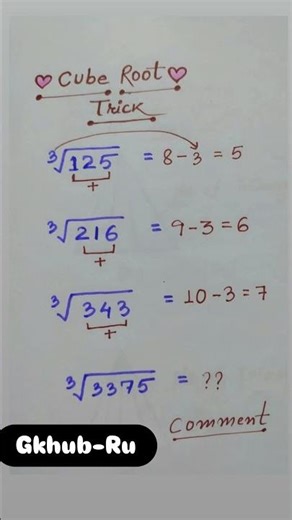 Cube Root
Trick
³√125 = 8-3 = 5
+
³√216 = 9-3=6
+
³√343 = 10-3=7
+
³√3375 = ??
Comment
Gkhub-Ru